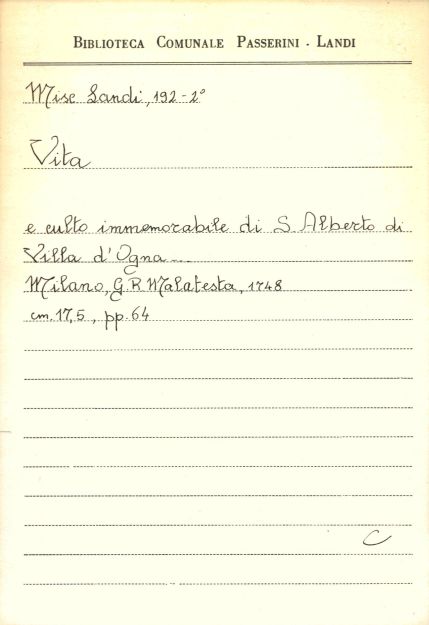 BIBLIOTECA COMUNALE PASSERINI - LANDI
Misc Landi, 192-2°
Vita
e culto immemorabile di S. Alberto di
Villa d'Ogna...
Milano, G.R. Malatesta, 1748
cm. 17,5, pp. 64
C